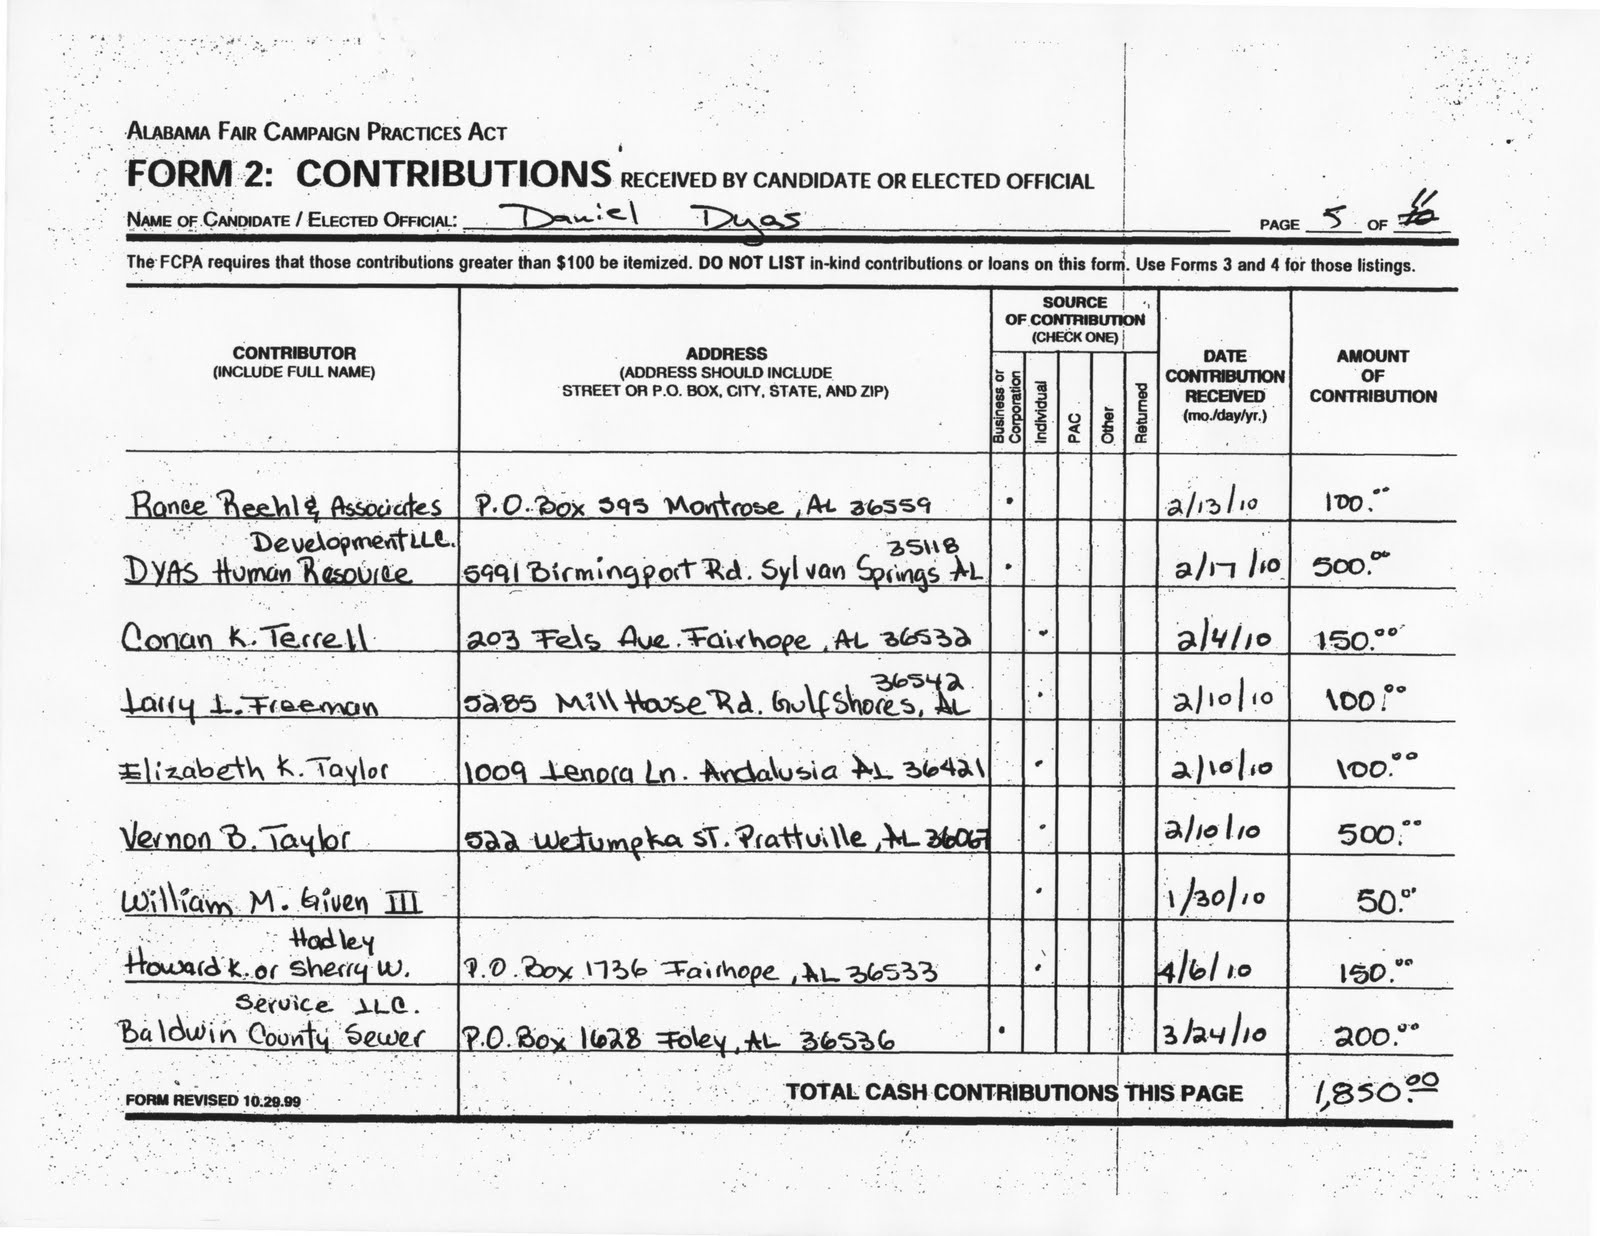 ALABAMA FAIR CAMPAIGN PRACTICES ACT
FORM 2: CONTRIBUTIONS RECEIVED BY CANDIDATE OR ELECTED OFFICIAL
NAME OF CANDIDATE / ELECTED OFFICIAL: Daniel Dyas PAGE 5 OF 11
The FCPA requires that those contributions greater than $100 be itemized. DO NOT LIST in-kind contributions or loans on this form. Use Forms 3 and 4 for those listings.
CONTRIBUTOR
(INCLUDE FULL NAME)
ADDRESS
(ADDRESS SHOULD INCLUDE
STREET OR P.O. BOX, CITY, STATE, AND ZIP)
SOURCE
OF CONTRIBUTION
(CHECK ONE)
Business or
Corporation
Individual
PAC
Other
Returned
DATE
CONTRIBUTION
RECEIVED
(mo./day/yr.)
AMOUNT
OF
CONTRIBUTION
Rance Reehl & Associates P.O. Box 595 Montrose, AL 36559 2/13/10 100.00
Development LLC. 35118
DYAS Human Resource 5991 Birmingport Rd. Sylvan Springs AL 2/17/10 500.00
Conan K. Terrell 203 Fels Ave. Fairhope, AL 36532 2/4/10 150.00
36542
Larry L. Freeman 5285 Mill House Rd. Gulf Shores, AL 2/10/10 100.00
Elizabeth K. Taylor 1009 Lenora Ln. Andalusia AL 36421 2/10/10 100.00
Vernon B. Taylor 522 Wetumpka ST. Prattville, AL 36067 2/10/10 500.00
William M. Given III 1/30/10 50.00
Hadley
Howard K. or Sherry W. P.O. Box 1736 Fairhope, AL 36533 4/6/10 150.00
Service LLC.
Baldwin County Sewer P.O. Box 1628 Foley, AL 36536 3/24/10 200.00
FORM REVISED 10.29.99 TOTAL CASH CONTRIBUTIONS THIS PAGE 1,850.00